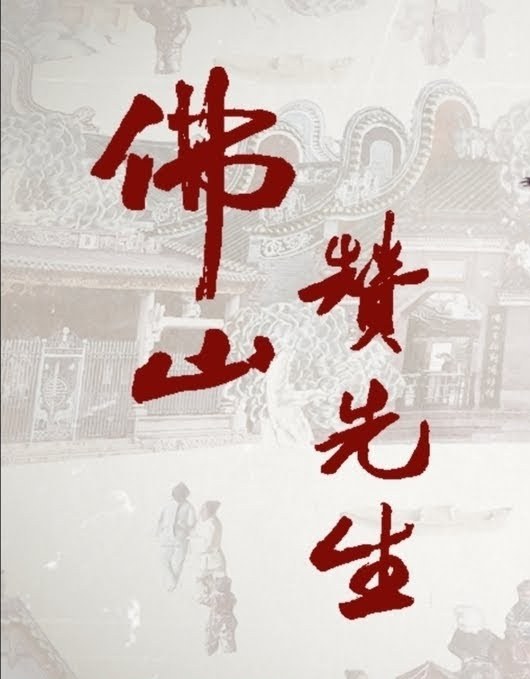 佛山
赞先生